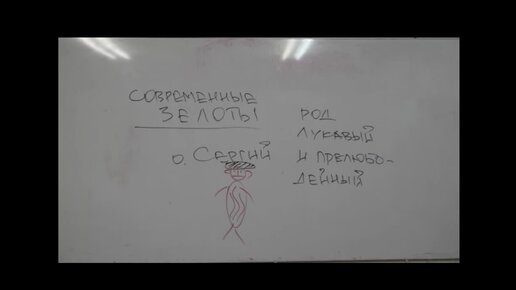 СОВРЕМЕННЫЕ
ЗЕЛОТЫ
О. СЕРГИЙ
РОД
ЛУКАВЫЙ
И ПРЕЛЮБО-
ДЕЙНЫЙ